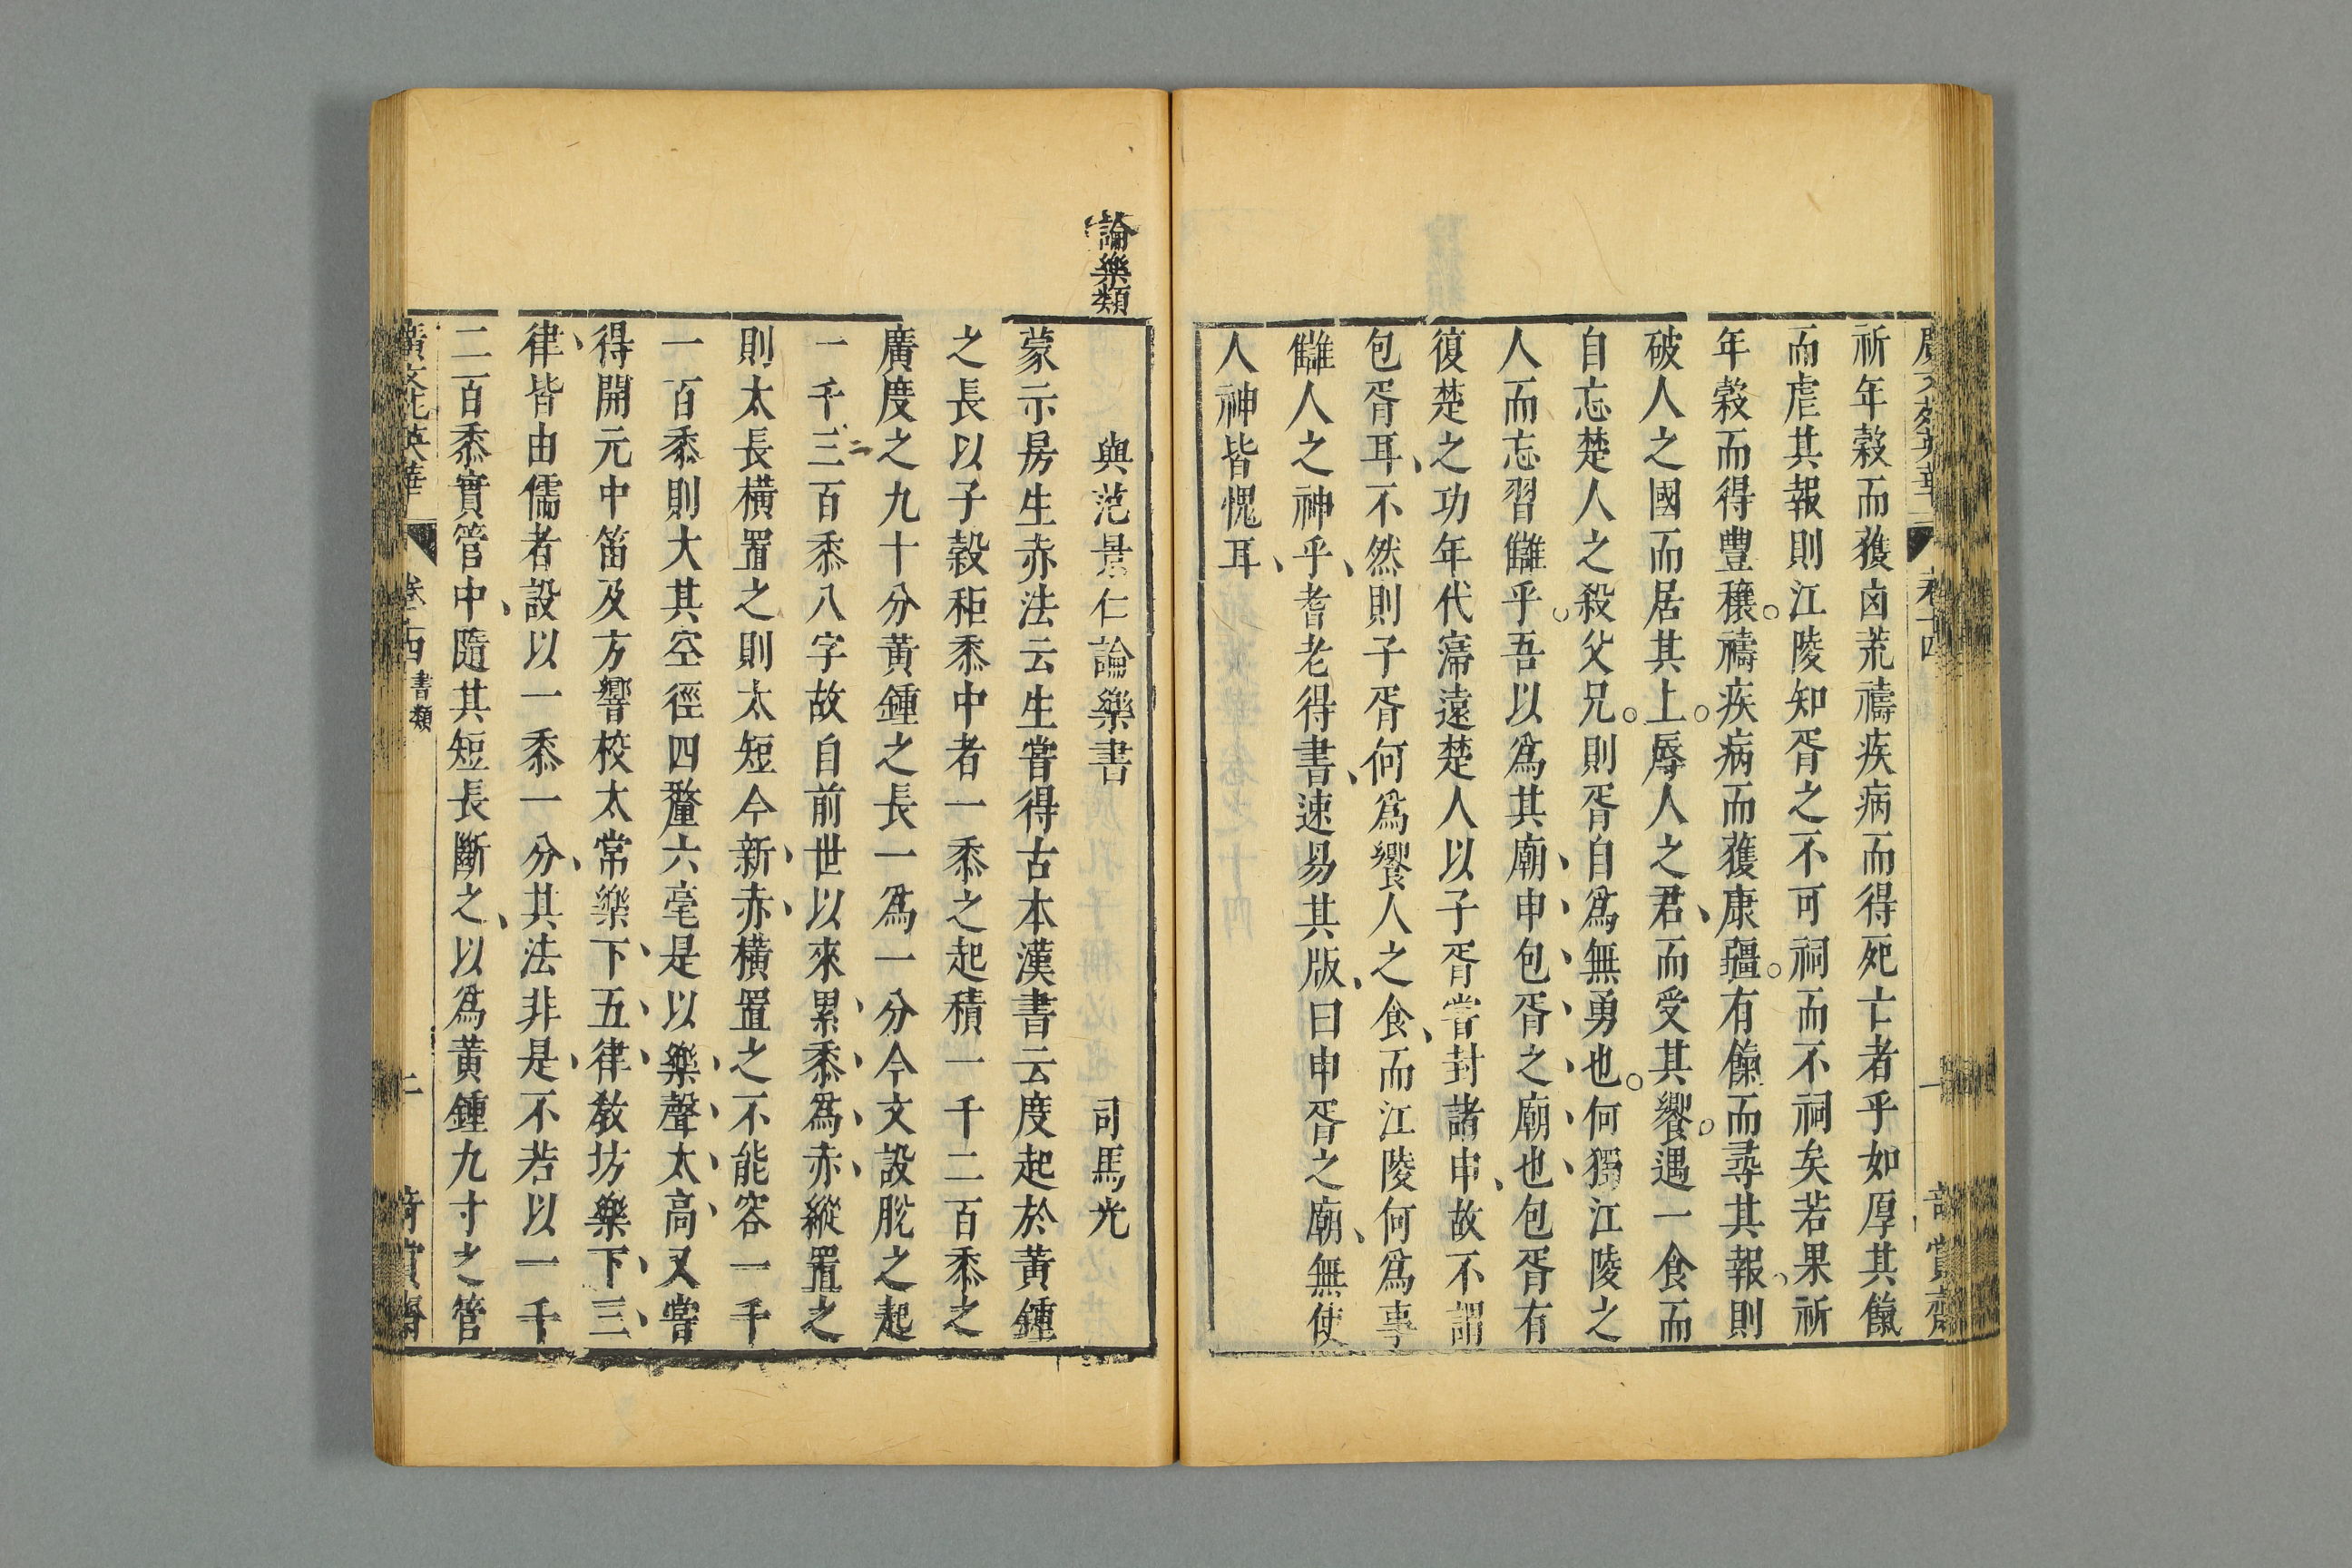 祈年榖而獲卤荒禱疾病而得死亡者乎如厚其餼
而虐其報則江陵知胥之不可祠而不祠矣若果祈
年榖而得豐穰禱疾病而獲康疆有餼而尋其報則
破人之國而居其上辱人之君而受其饗遇一食而
自忘楚人之殺父兄則胥自爲無勇也何獨江陵之
人而忘習讎乎吾以爲其廟申包胥之廟也包胥有
復楚之功年代寖遠楚人以子胥嘗封諸申故不謂
包胥耳不然則子胥何爲饗人之食而江陵何爲事
讎人之神乎耆老得書速易其版曰申胥之廟無使
人神皆愧耳
論樂類
與范景仁論樂書 司馬光
蒙示房生赤法云生嘗得古本漢書云度起於黃鍾
之長以子榖秬黍中者一黍之起積一千二百黍之
廣度之九十分黃鍾之長一爲一分今文設脫之起
一千二百黍八字故自前世以來累黍爲赤縱置之
則太長橫置之則太短今新赤橫置之不能容一千
二百黍則大其空徑四釐六毫是以樂聲太高又嘗
得開元中笛及方響校太常樂下五律教坊樂下三
律皆由儒者設以一黍一分其法非是不若以一千
二百黍實管中隨其短長斷之以爲黃鍾九寸之管
廣文苑英華
書類